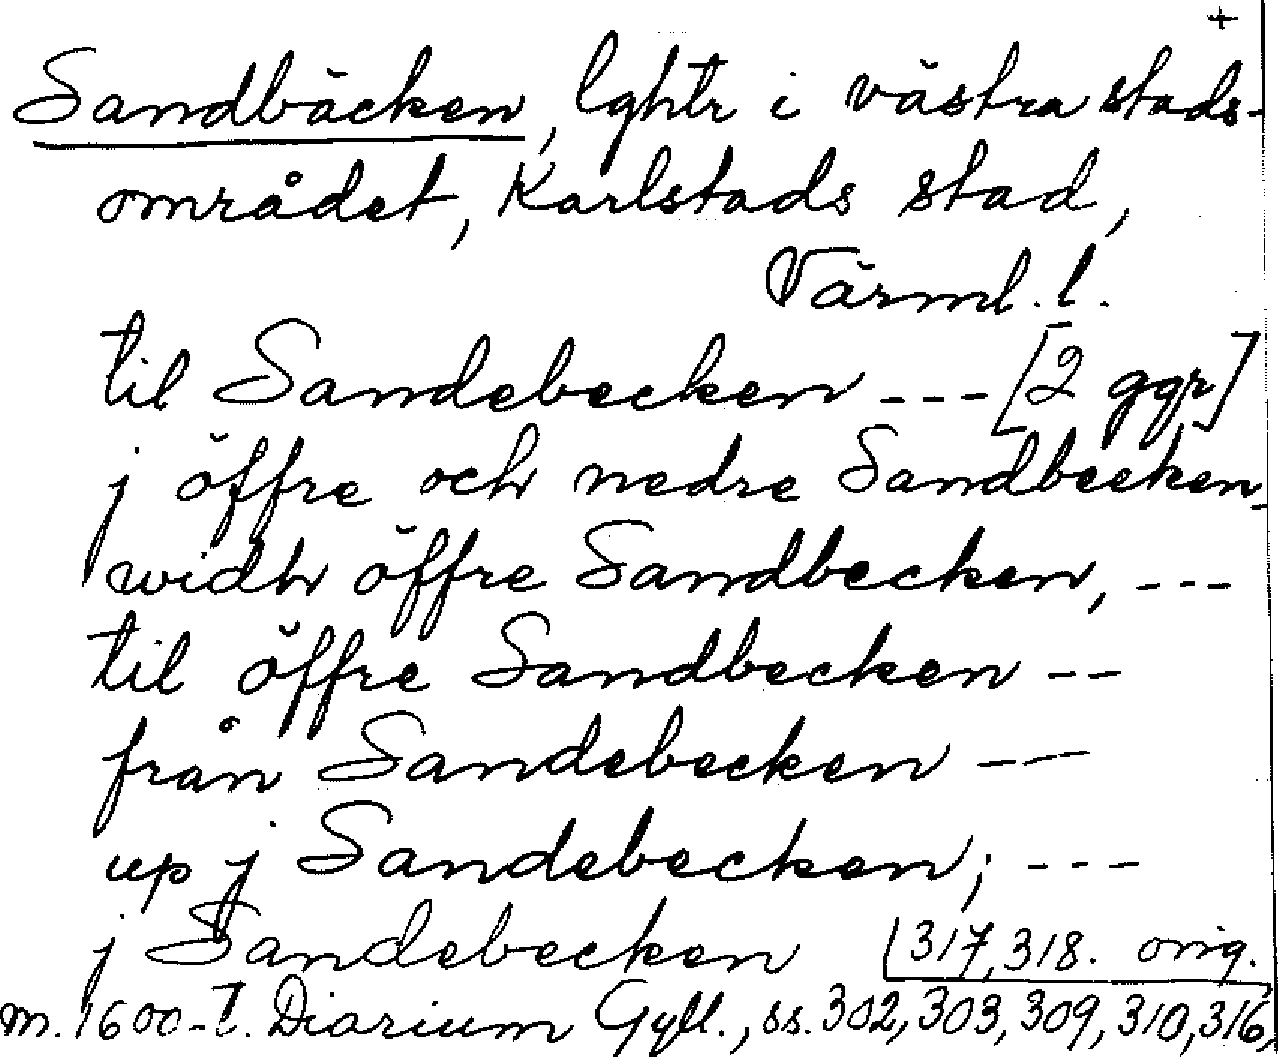 +
Sandbäcken, lghtr i västra stads-
området, Karlstads stad,
Värml. l.
til Sandebecken --- [2 ggr]
j öffre och nedre Sandbecken
widh öffre Sandbecken, ---
til öffre Sandbecken --
från Sandebecken --
up j Sandebecken; ---
j Sandebecken 317, 318. orig.
m. 1600-t. Diarium Gyll., ss. 302, 303, 309, 310, 316,